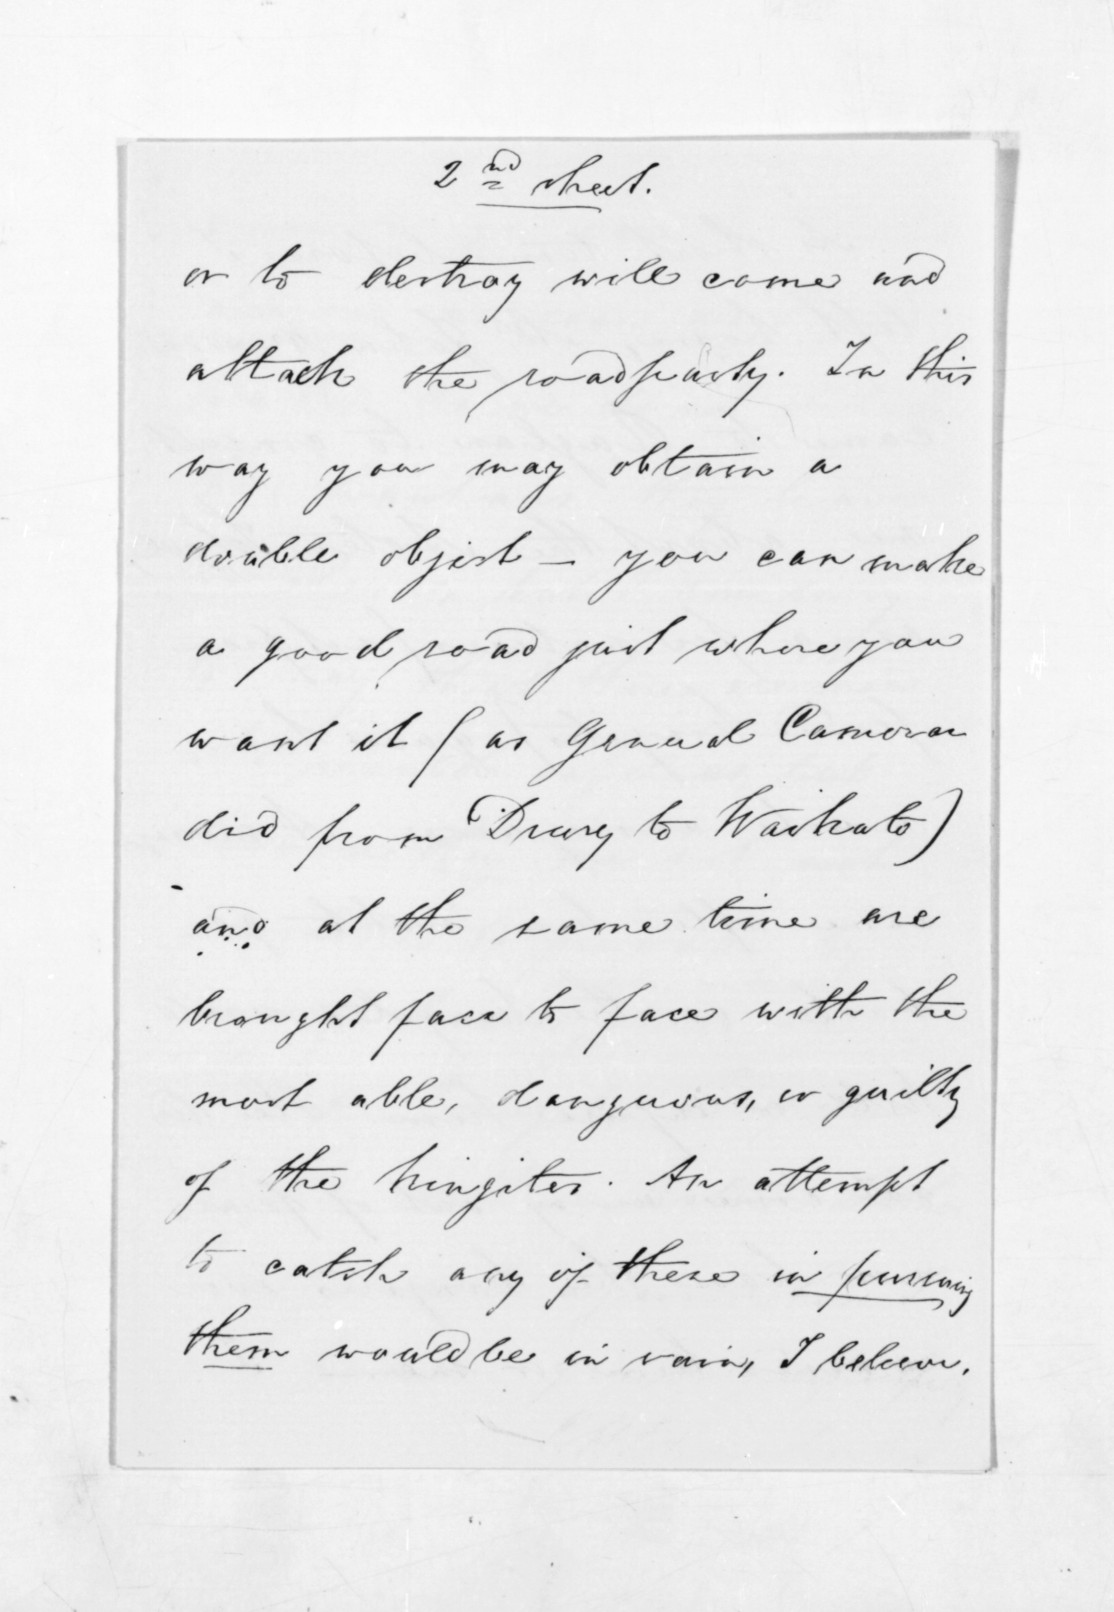 2nd sheet.
or to destroy will come and
attack the roadparty. In this
way you may obtain a
double object — you can make
a good road just where you
want it (as General Cameron
did from Drury to Waikato)
and at the same time are
brought face to face with the
most able, dangerous, or guilty
of the kingites. An attempt
to catch any of these in pursuing
them would be in vain, I believe.